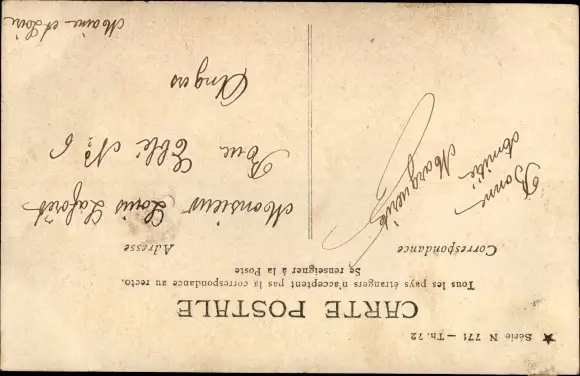 ★ Série N 771 — Th. 72
CARTE POSTALE
Tous les pays étrangers n'acceptent pas la correspondance au recto.
Se renseigner à la Poste
Correspondance
Adresse
Bonne
Amitié
Marguerite
Monsieur Louis Laforêt
Rue Eblé No. 6
Angers
Maine et Loire